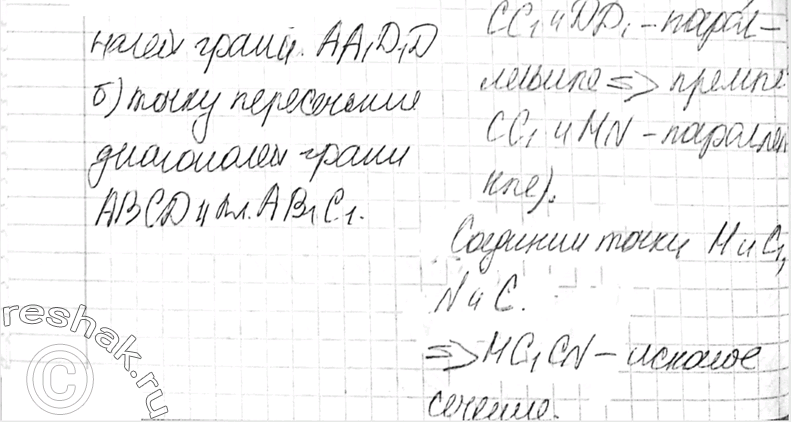 налей грани. AA₁D₁D
б) точку пересечения
диагоналей грани
ABCD и пл. AB₁C₁.
CC₁ и DD₁ - парал-
лельные => прямые
CC₁ и MN - параллель
ные).
Соединим точки M и C₁,
N и C.
=> MC₁CN - искомое
сечение.
reshak.ru